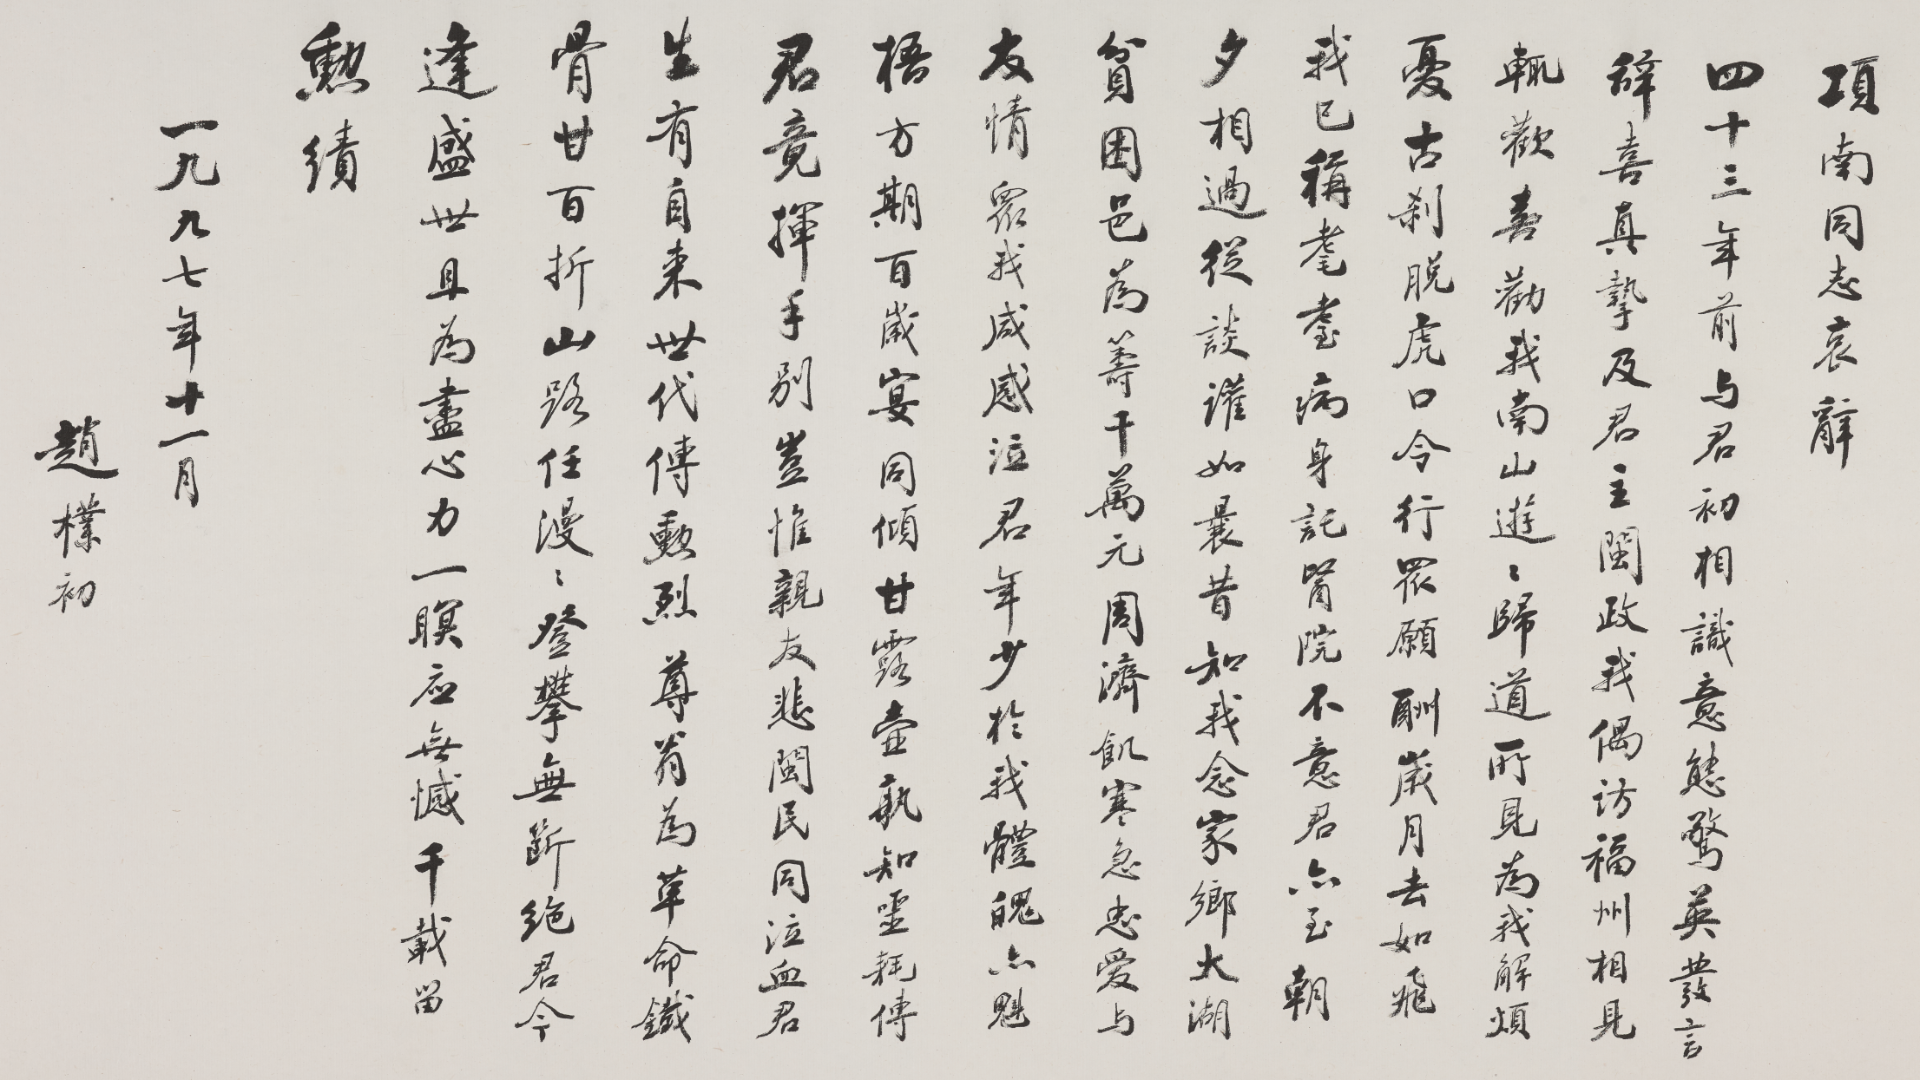 項南同志哀辭
四十三年前与君初相識意態驚英發言
辭喜真摯及君主閩政我偶访福州相見
輒歡喜勸我南山遊〻歸道所見為我解煩
憂古刹脱虎口令行眾願酬歲月去如飛
我已稱耄耋病身託醫院不意君亦至朝
夕相過從談讌如曩昔知我念家鄉太湖
貧困邑為籌千萬元周濟飢寒急忠愛与
友情眾我咸感泣君年少於我體魄亦魁
梧方期百歲宴同傾甘露壺孰知噩耗傳
君竟揮手别豈惟親友悲閩民同泣血君
生有自来世代傳勳烈尊翁為革命鐵
骨甘百折山路任漫〻登攀無断绝君今
逢盛世且為盡心力一瞑应無憾千載留
勳绩
一九九七年十一月
趙樸初